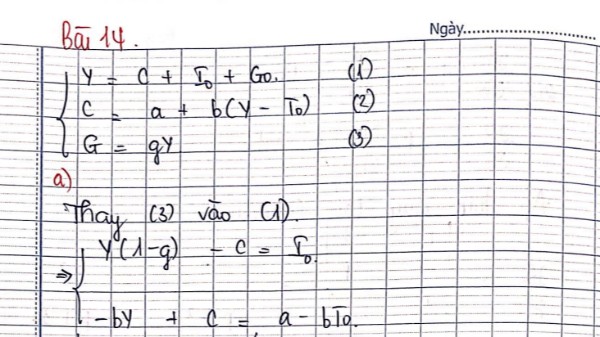 Ngày
Bài 14.
Y = C + I₀ + G₀. (1)
C = a + b(Y - T₀) (2)
G = gY (3)
a)
Thay (3) vào (1).
Y(1-g) - C = I₀.
⇒
-bY + C = a - bT₀.